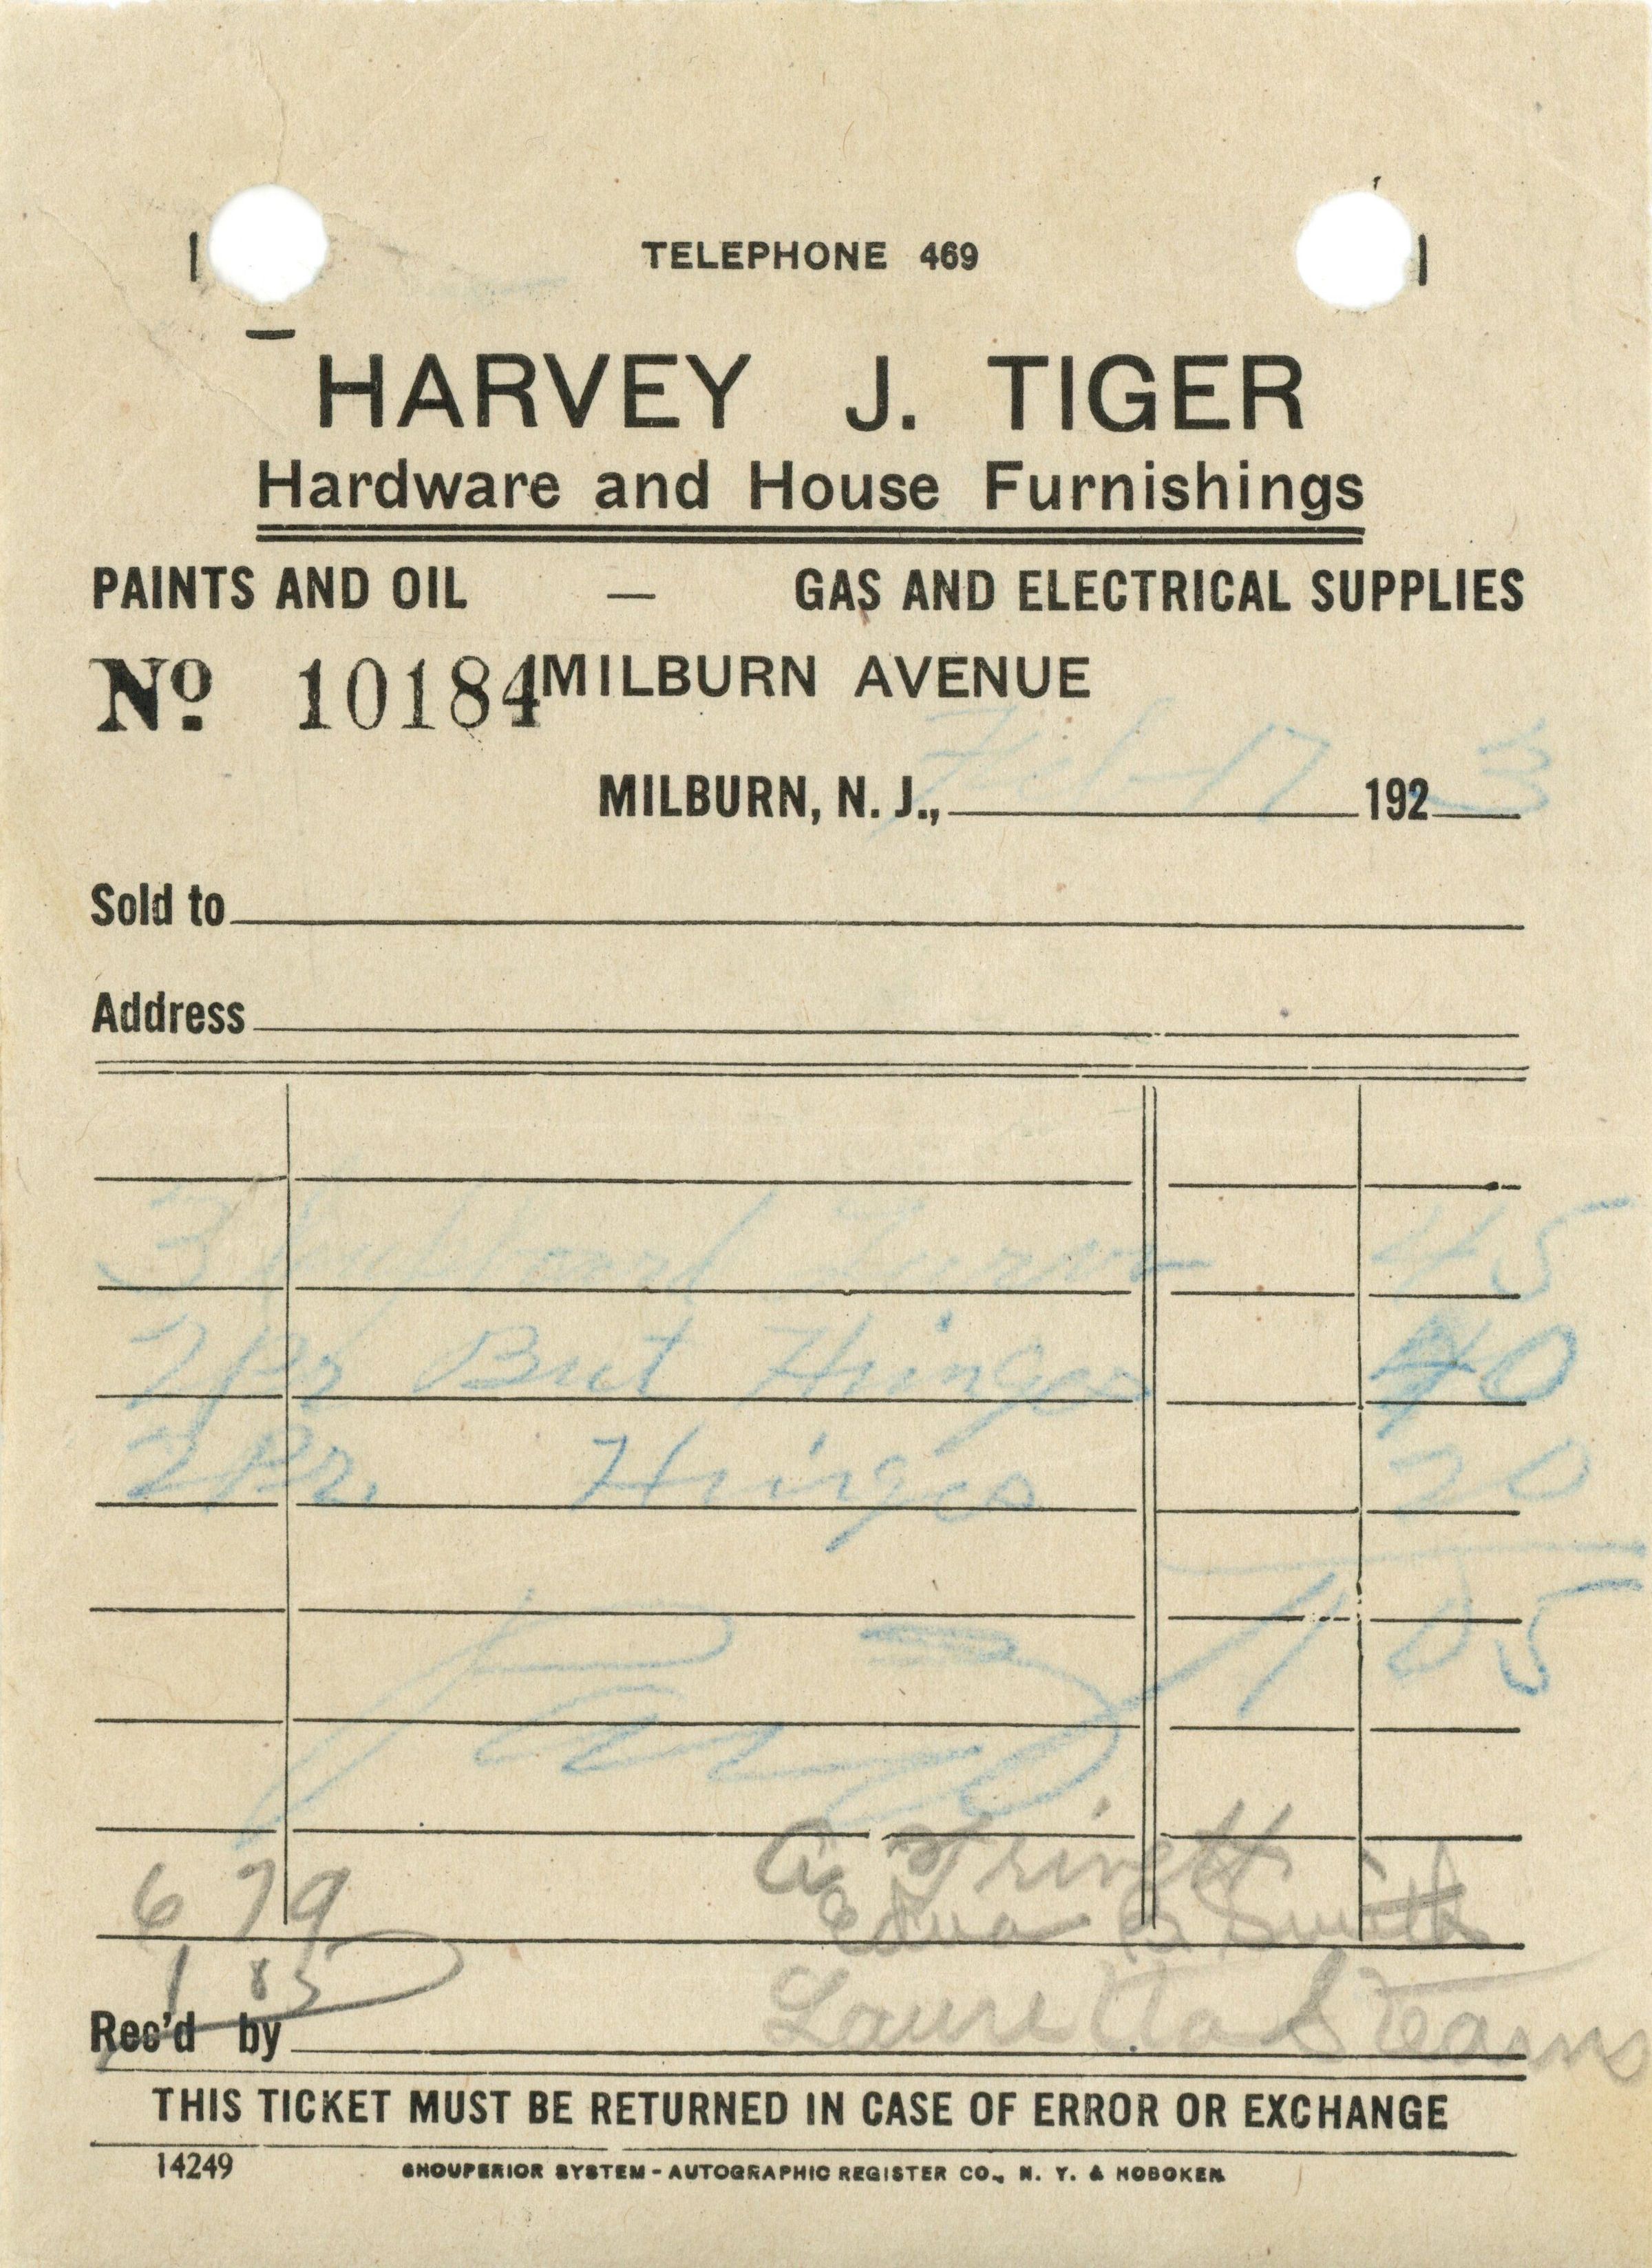 TELEPHONE 469
HARVEY J. TIGER
Hardware and House Furnishings
PAINTS AND OIL — GAS AND ELECTRICAL SUPPLIES
No. 10184 MILBURN AVENUE
MILBURN, N. J., Feb-17 1923
Sold to
Address
3 Cupboard Turns 45
2 Pr But Hinges 40
2 Pr. Hinges 20
1 05
Paid
A Trivett
6 79 Edna B Smith
1 85 Lauretta Stearns
Rec'd by
THIS TICKET MUST BE RETURNED IN CASE OF ERROR OR EXCHANGE
14249 SHOUPERIOR SYSTEM - AUTOGRAPHIC REGISTER CO., N. Y. & HOBOKEN